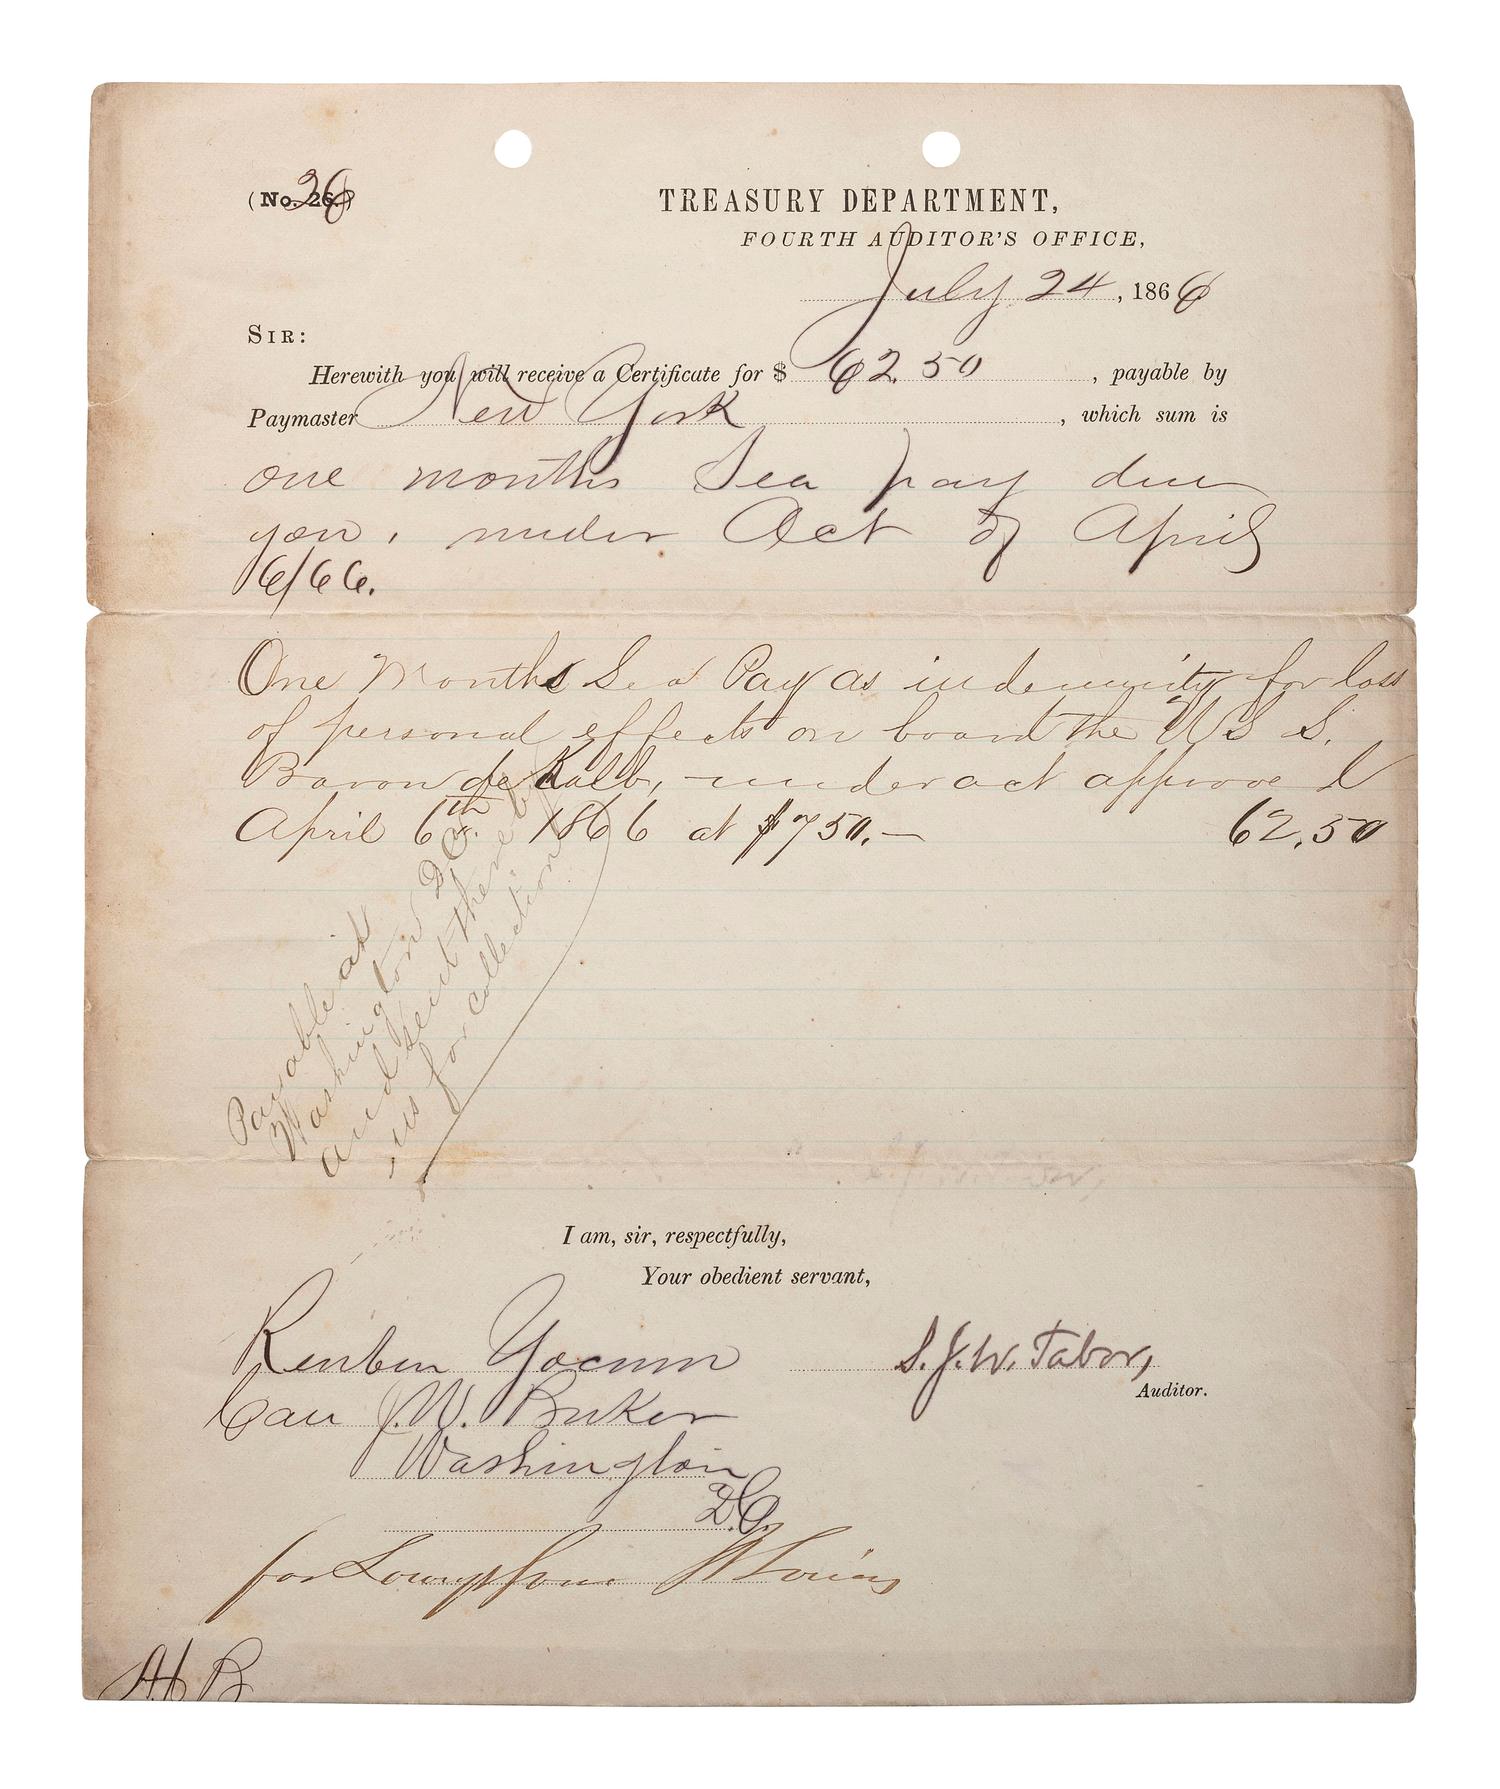 (No. 26.) 26
TREASURY DEPARTMENT,
FOURTH AUDITOR'S OFFICE,
July 24, 1866
SIR:
Herewith you will receive a Certificate for $ 62.50, payable by
Paymaster New York, which sum is
one months Sea pay due
you, under Act of April
6/66.
One Months Sea Pay as indemnity for loss
of personal effects on board the U S S.
Baron de Kalb, under act approved
April 6th. 1866 at $750.— 62.50
Payable at
Washington D.C.
and sent there by
us for collection
I am, sir, respectfully,
Your obedient servant,
Reuben Yocum
S. J. W. Tabor,
Auditor.
Care J. W. Buker
Washington
D.C.
for